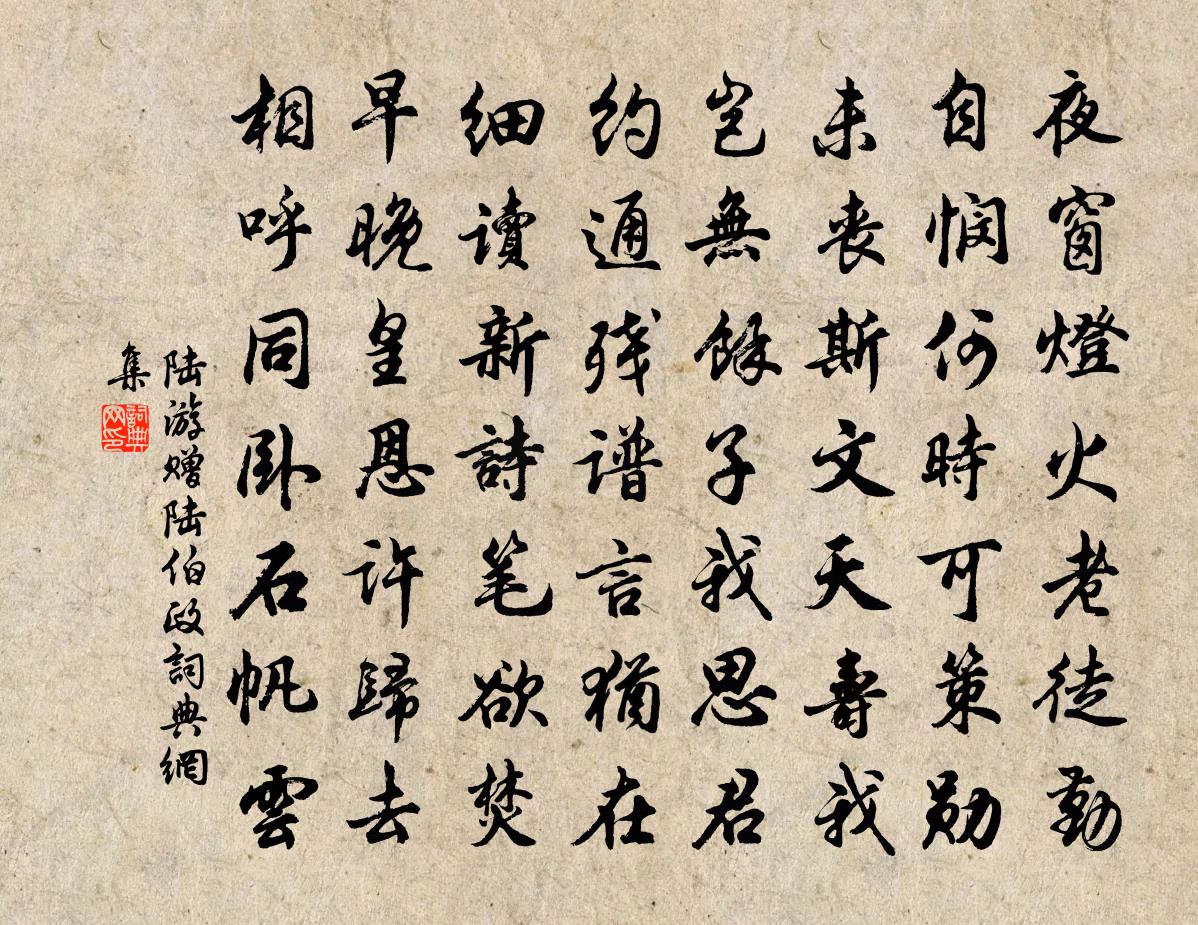 夜窗燈火老徒勤
自悯何時可策勋
未丧斯文天壽我
岂無餘子我思君
约通残谱言猶在
细讀新詩笔欲焚
早晚皇恩许歸去
相呼同卧石帆雲
陆游赠陆伯政詞典網
集
詞典
网印